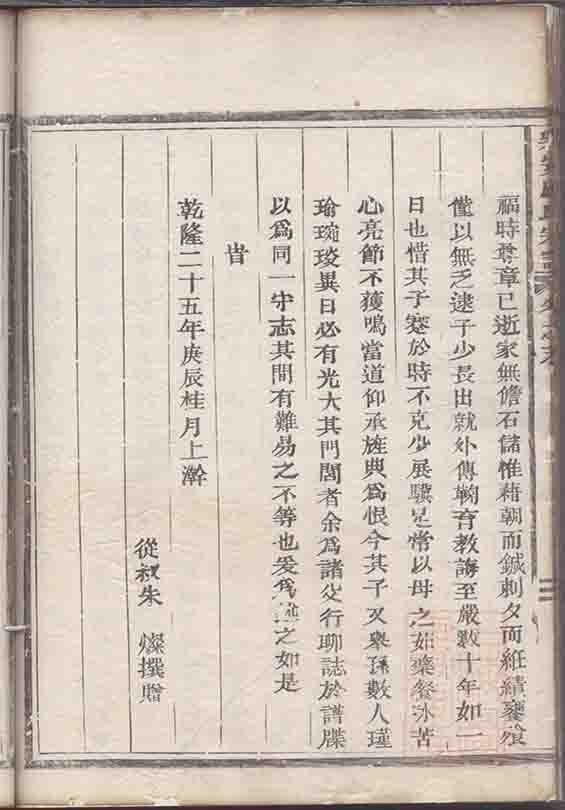 福時尊章已逝家無儋石儲惟藉朝而鍼刺夕而絍績饔飧
僅以無乏逮子少長出就外傳鞠育教誨至嚴數十年如一
日也惜其子蹇於時不克少展驥足常以母之茹蘗餐冰苦
心亮節不獲鳴當道仰承旌典爲恨今其子又舉孫數人瑾
瑜琬琰異日必有光大其門閭者余爲諸父行聊誌於譜牒
以爲同一守志其間有難易之不等也爰爲之如是
旹
乾隆二十五年庚辰桂月上澣
從叔朱 燦撰贈